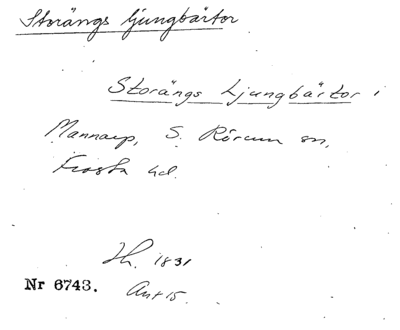 Storängs ljungbärtor
Storängs Ljungbärtor i
Mannarp, S. Rörum sn,
Frosta hd.
Lh. 1831
Nr 6743. Ant 15.